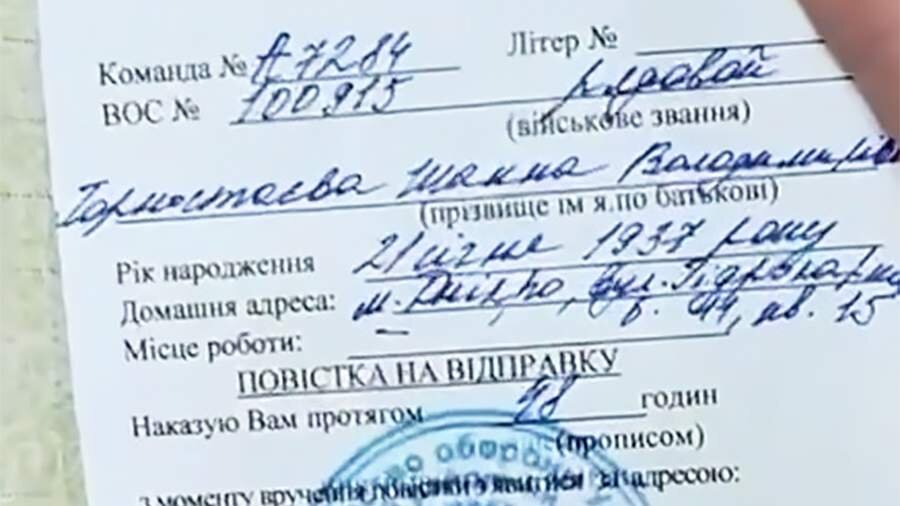 Команда № А7284 Літер №
ВОС № 100915 рядовой
(військове звання)
Горностаєва Жанна Володимирівн
(прізвище ім я.по батькові)
Рік народження 21 січне 1937 року
Домашня адреса: м. Дніпро, вул.
44, кв. 15
Місце роботи: –
ПОВІСТКА НА ВІДПРАВКУ
Наказую Вам протягом 48 годин
(прописом)
з моменту вручення повістки з'явитися за адресою: